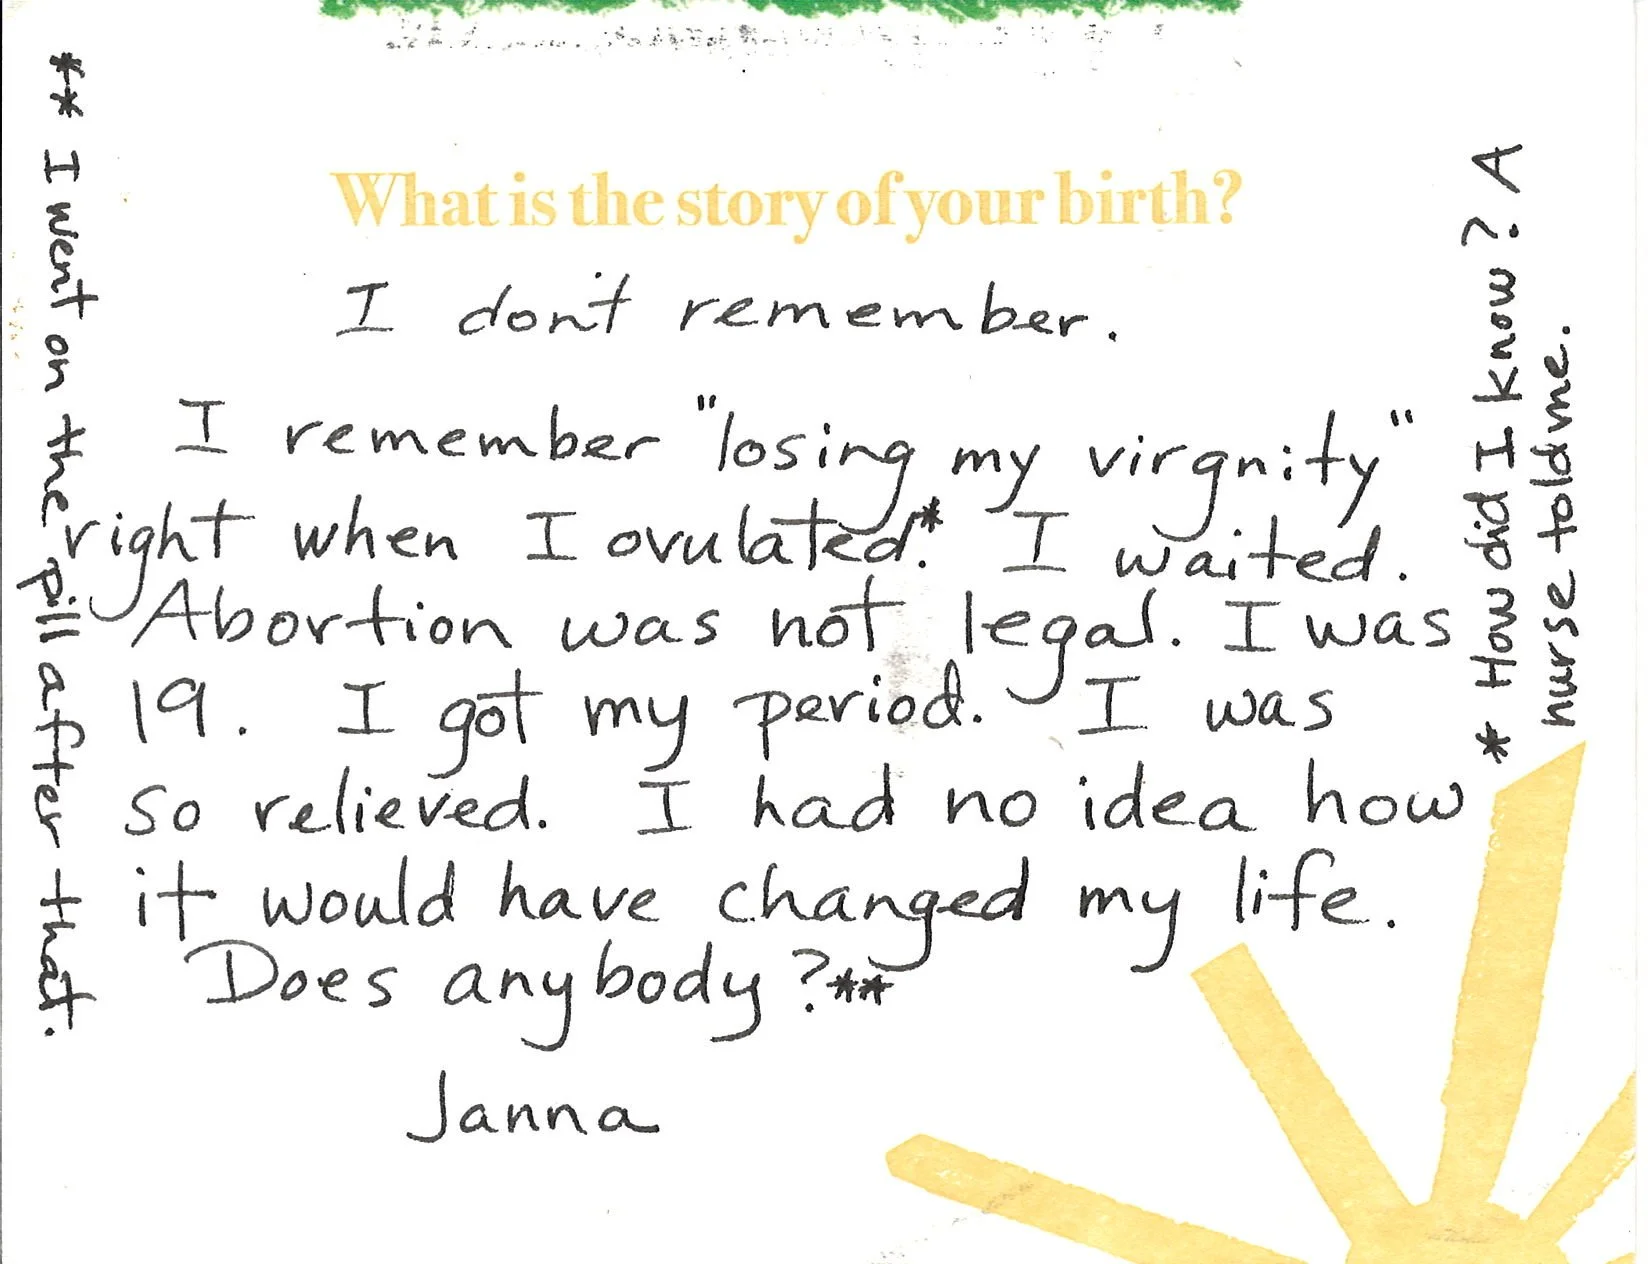 What is the story of your birth?
I don't remember.
I remember "losing my virgnity"
right when I ovulated.* I waited.
Abortion was not legal. I was
19. I got my period. I was
so relieved. I had no idea how
it would have changed my life.
Does anybody?**
Janna
* How did I know? A
nurse told me.
** I went on the pill after that.